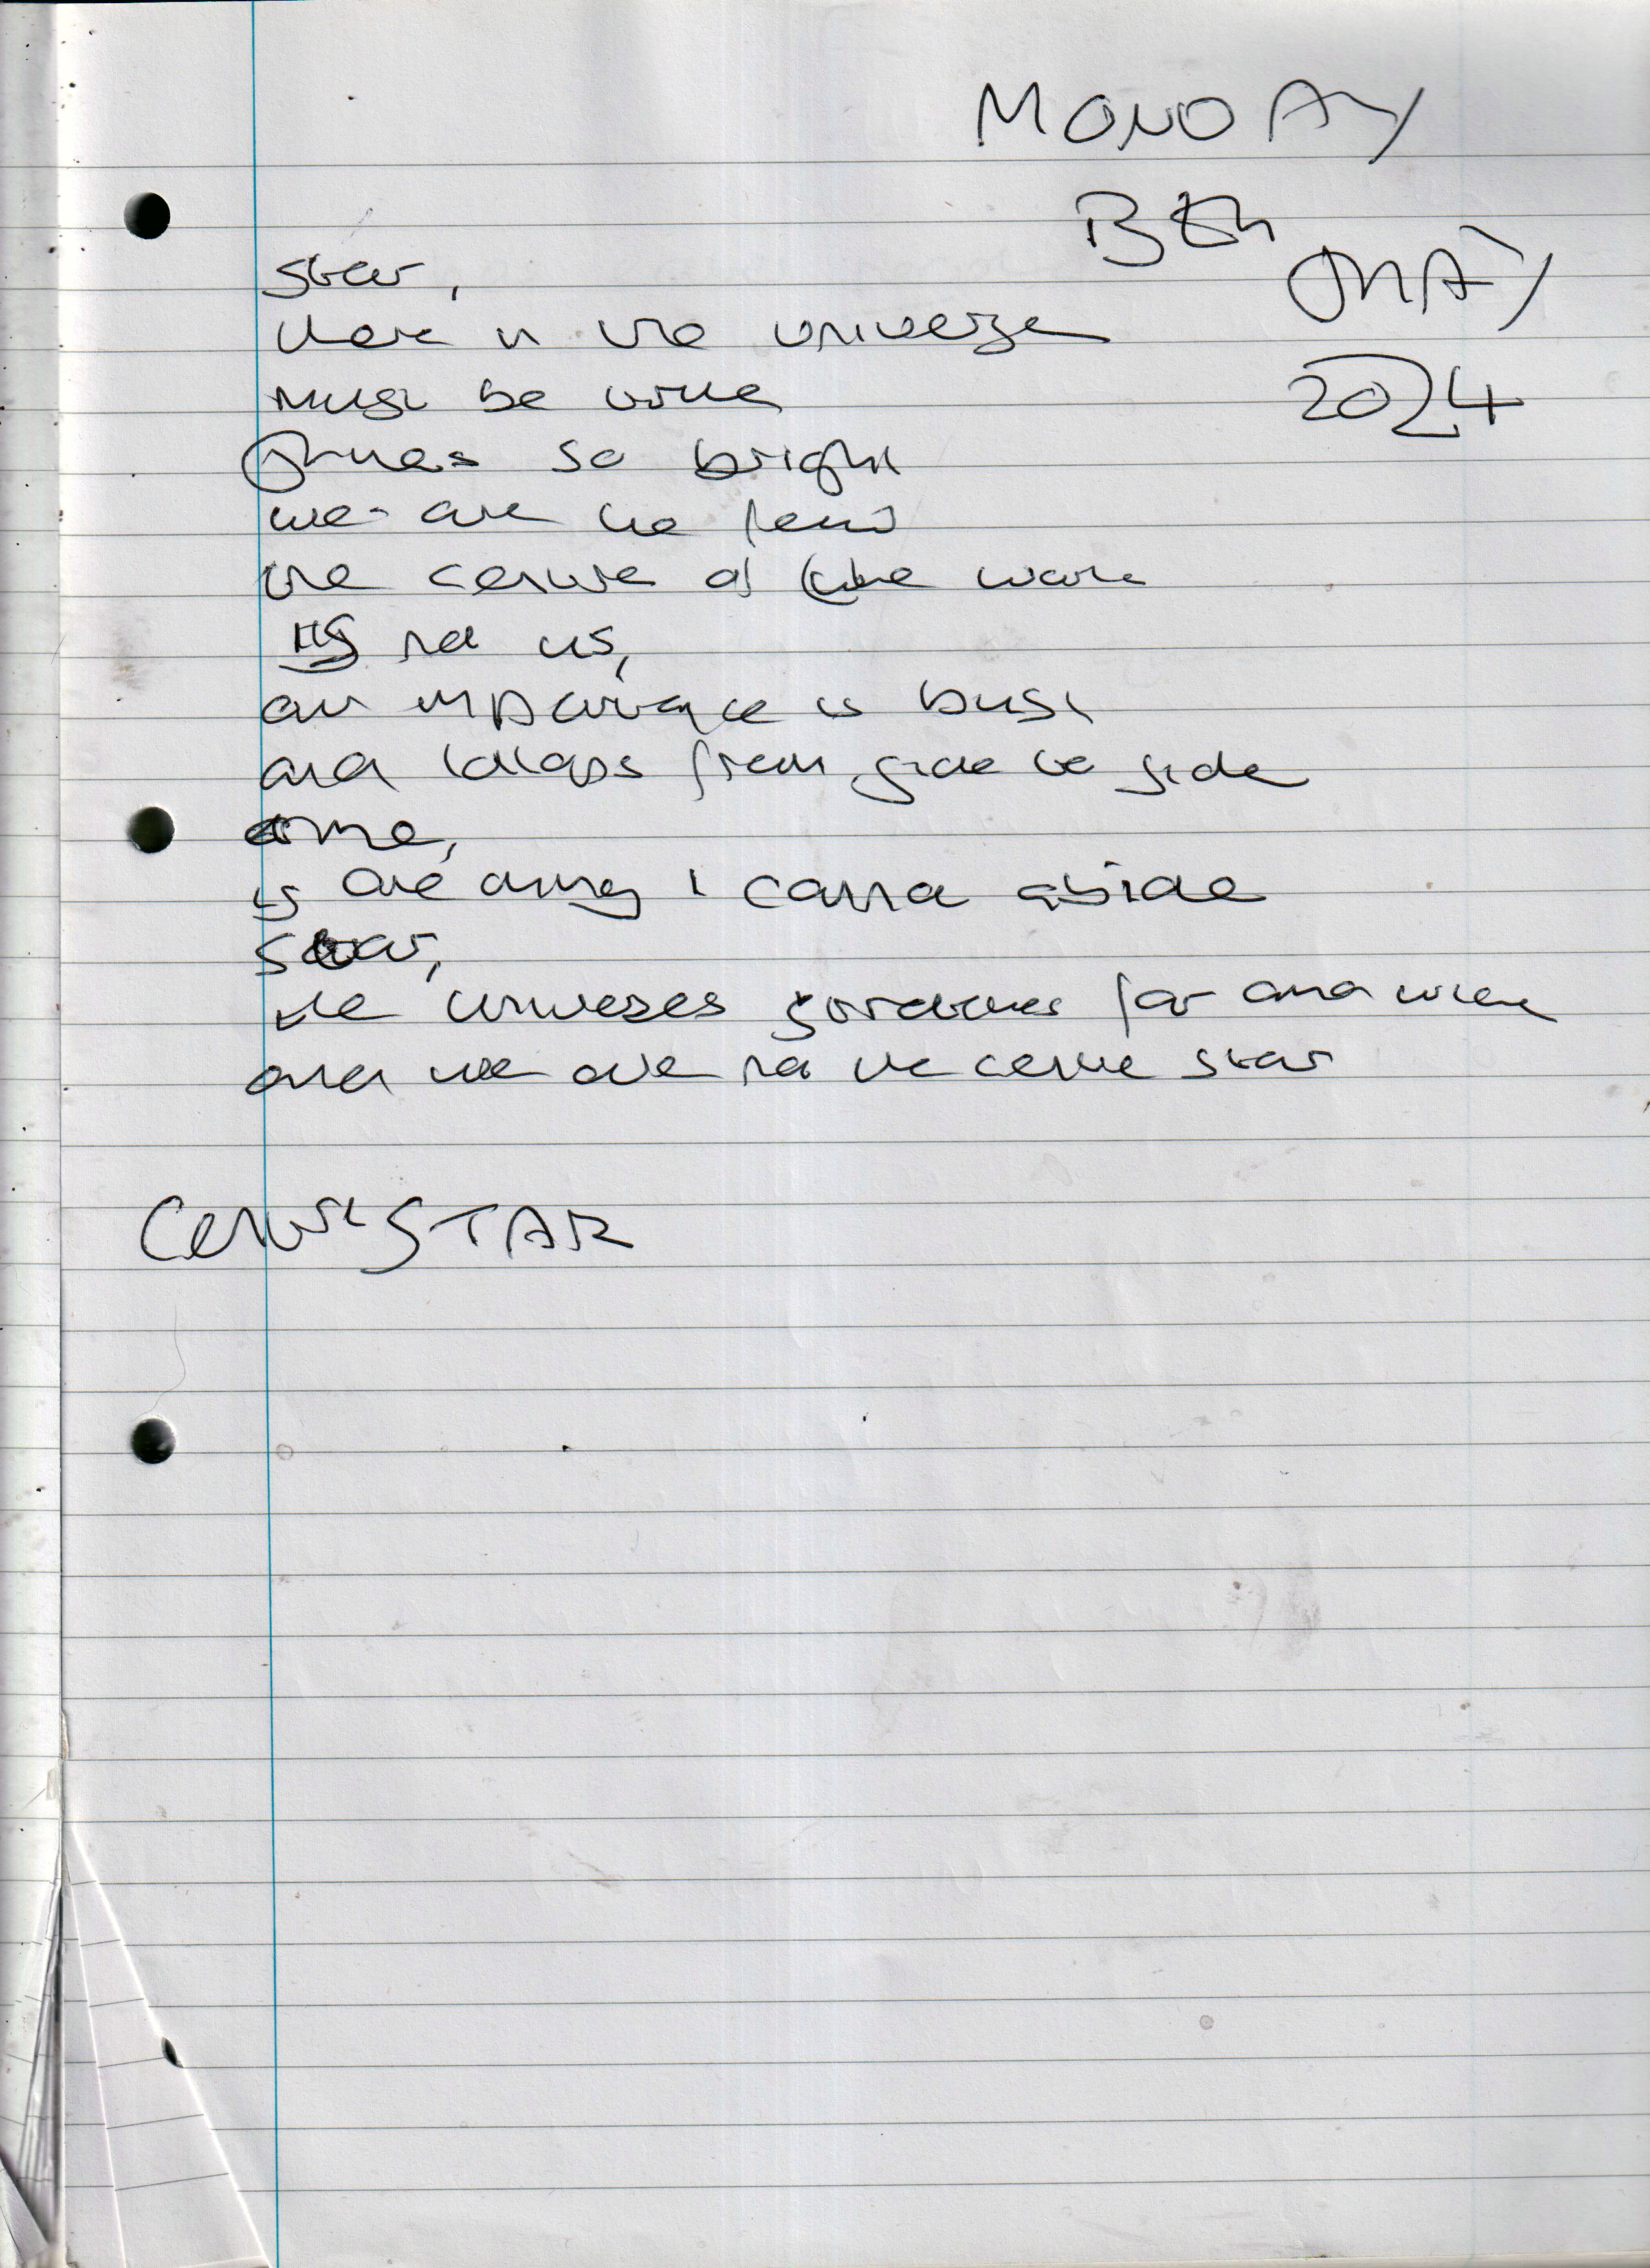 MONDAY
13th
MAY
2024
Star,
there in the universe
must be
shines so bright
we are the
the centre of the
its not us,
our importance is dust
and from side to side
time,
is one thing I canna abide
star,
the universes far and wide
and we are not the centre star
Centre STAR